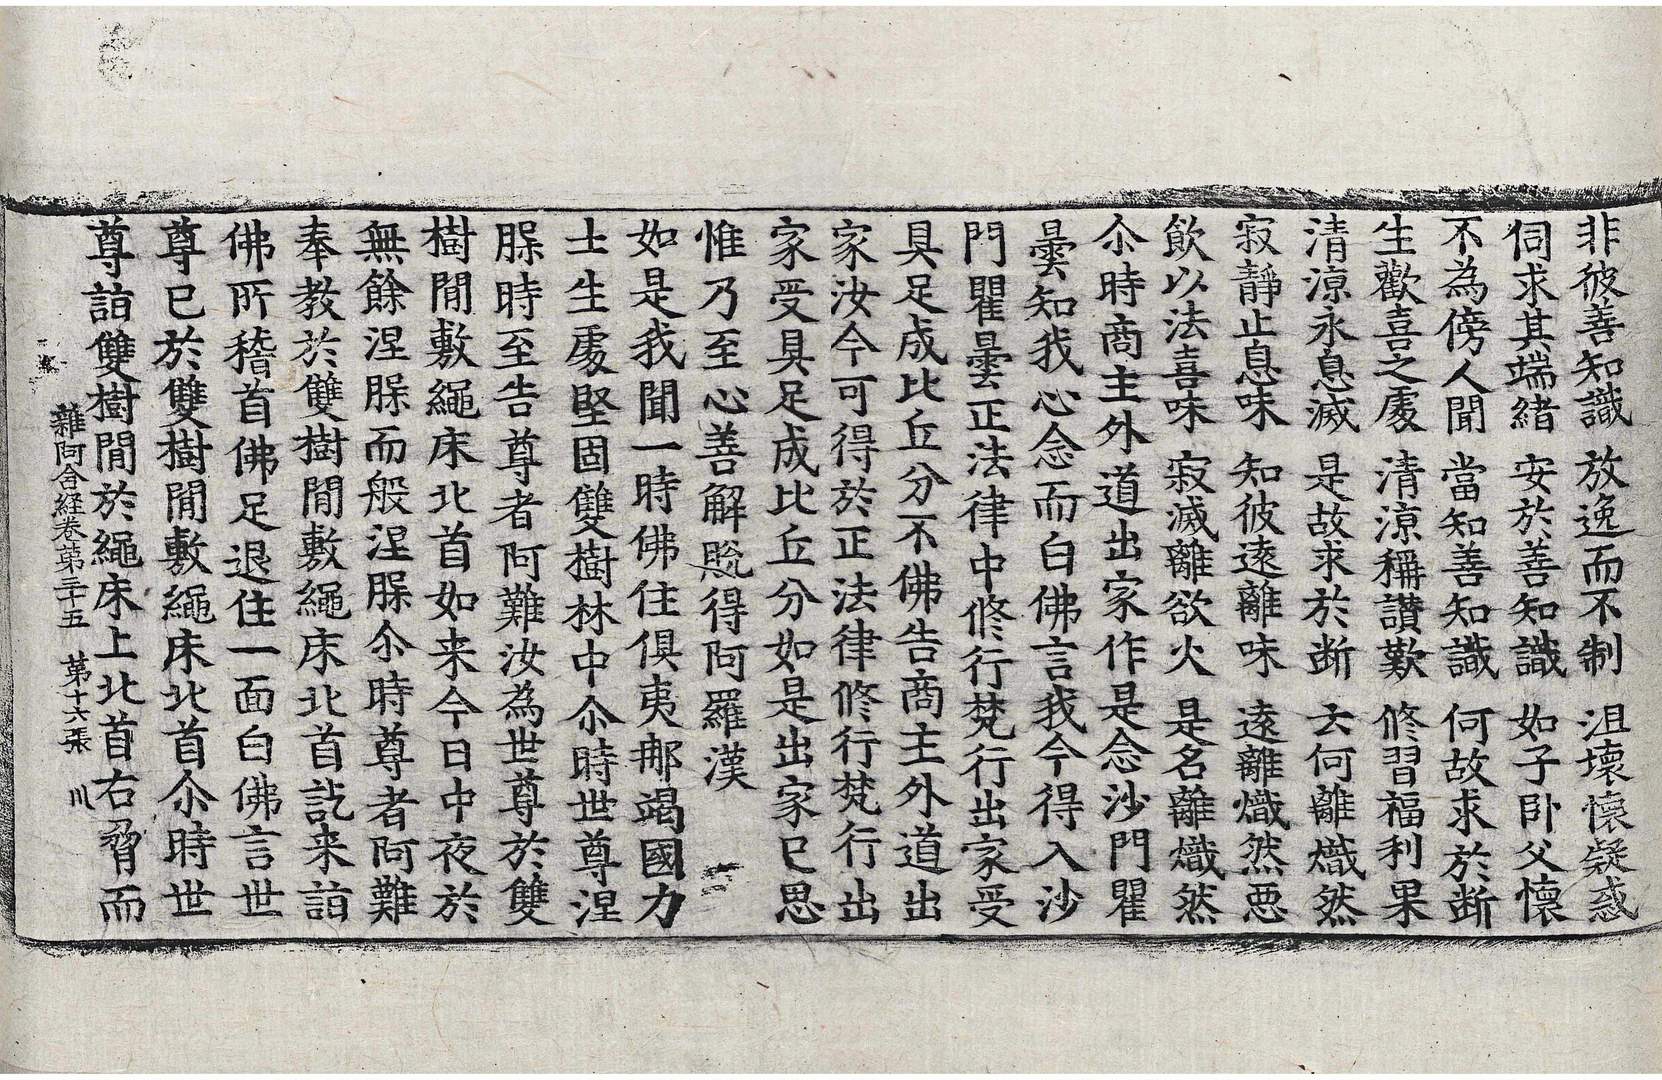 非彼善知識 放逸而不制 沮壞懷疑惑
伺求其端緒 安於善知識 如子卧父懷
不為傍人閒 當知善知識 何故求於断
生歡喜之處 清涼稱讃歎 修習福利果
清涼永息滅 是故求於断 云何離熾然
寂靜止息味 知彼遠離味 遠離熾然惡
飲以法喜味 寂滅離欲火 是名離熾然
尒時商主外道出家作是念沙門瞿
曇知我心念而白佛言我今得入沙
門瞿曇正法律中修行梵行出家受
具足成比丘分不佛告商主外道出
家汝今可得於正法律修行梵行出
家受具足成比丘分如是出家已思
惟乃至心善解脫得阿羅漢
如是我聞一時佛住俱夷那竭國力
士生處堅固雙樹林中尒時世尊涅
槃時至告尊者阿難汝為世尊於雙
樹閒敷繩床北首如来今日中夜於
無餘涅槃而般涅槃尒時尊者阿難
奉教於雙樹閒敷繩床北首訖来詣
佛所稽首佛足退住一面白佛言世
尊已於雙樹閒敷繩床北首尒時世
尊詣雙樹閒於繩床上北首右脅而
雜阿含経卷第三十五 第十六張 川